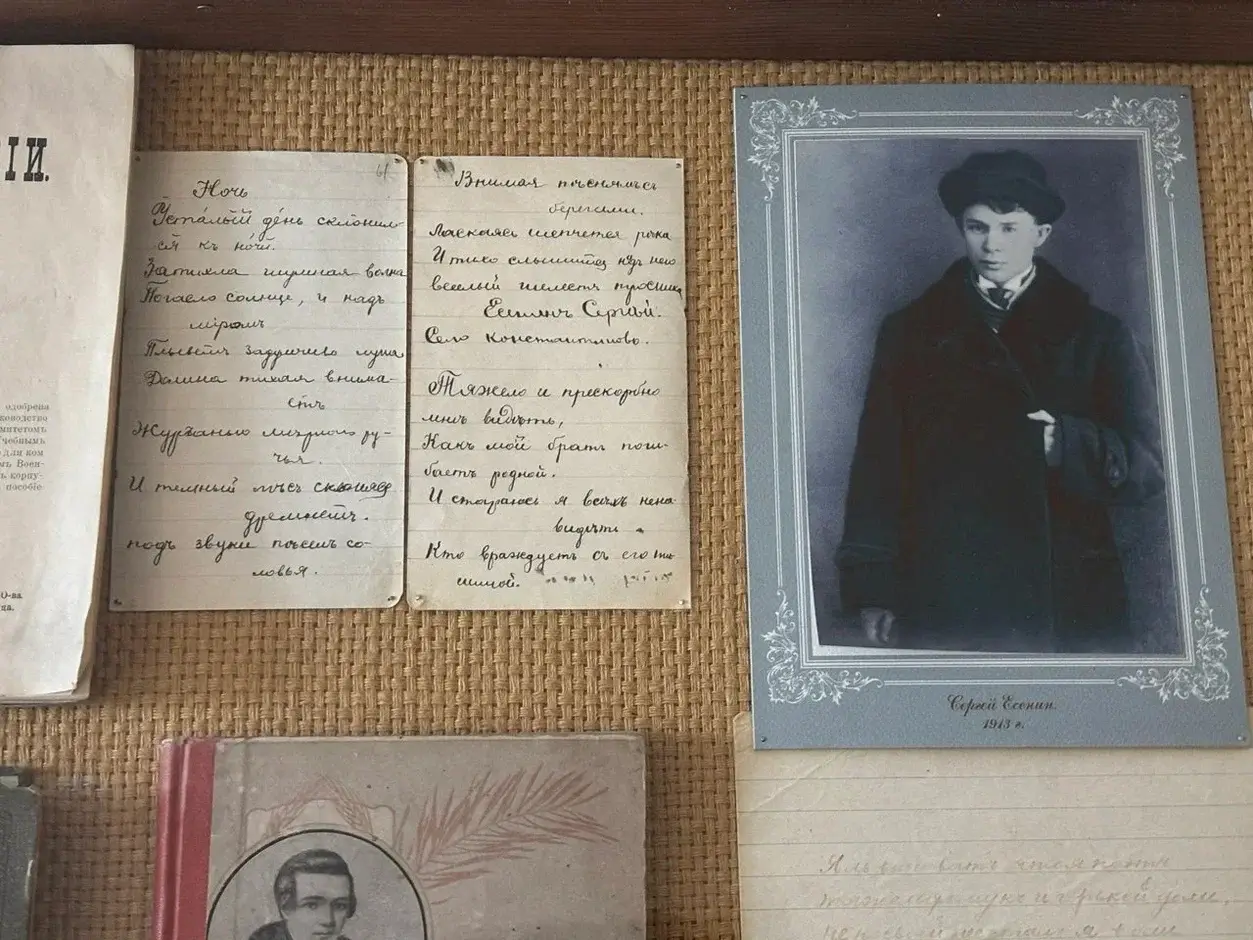 ІИ.
одобрена
учебнымъ
для ком
Воен-
корпу-
пособіе
Ночь
Усталый день склонил-
ся къ ночи.
Затихла шумная волна
Погасло солнце, и надъ
міромъ
Плыветъ задумчиво луна
Долина тихая внима-
етъ
Журчанью мирнаго ру-
чья.
И темный лѣсъ склоняся
дремлетъ.
подъ звуки пѣсень со-
ловья.
Внимая пѣснямъ съ
берегами.
Ласкаясь шепчется рѣка
И тихо слышится надъ нею
веселый шелестъ тросника
Есенинъ Сергѣй.
Село Константиново.
Тяжело и прескорбно
мнѣ видѣть,
Какъ мой братъ поги-
баетъ родной.
И стараюсь я всѣхъ нена-
видѣть
Кто враждуетъ съ его ти
шиной.
Сергей Есенин.
1913 г.
и горькой доли,